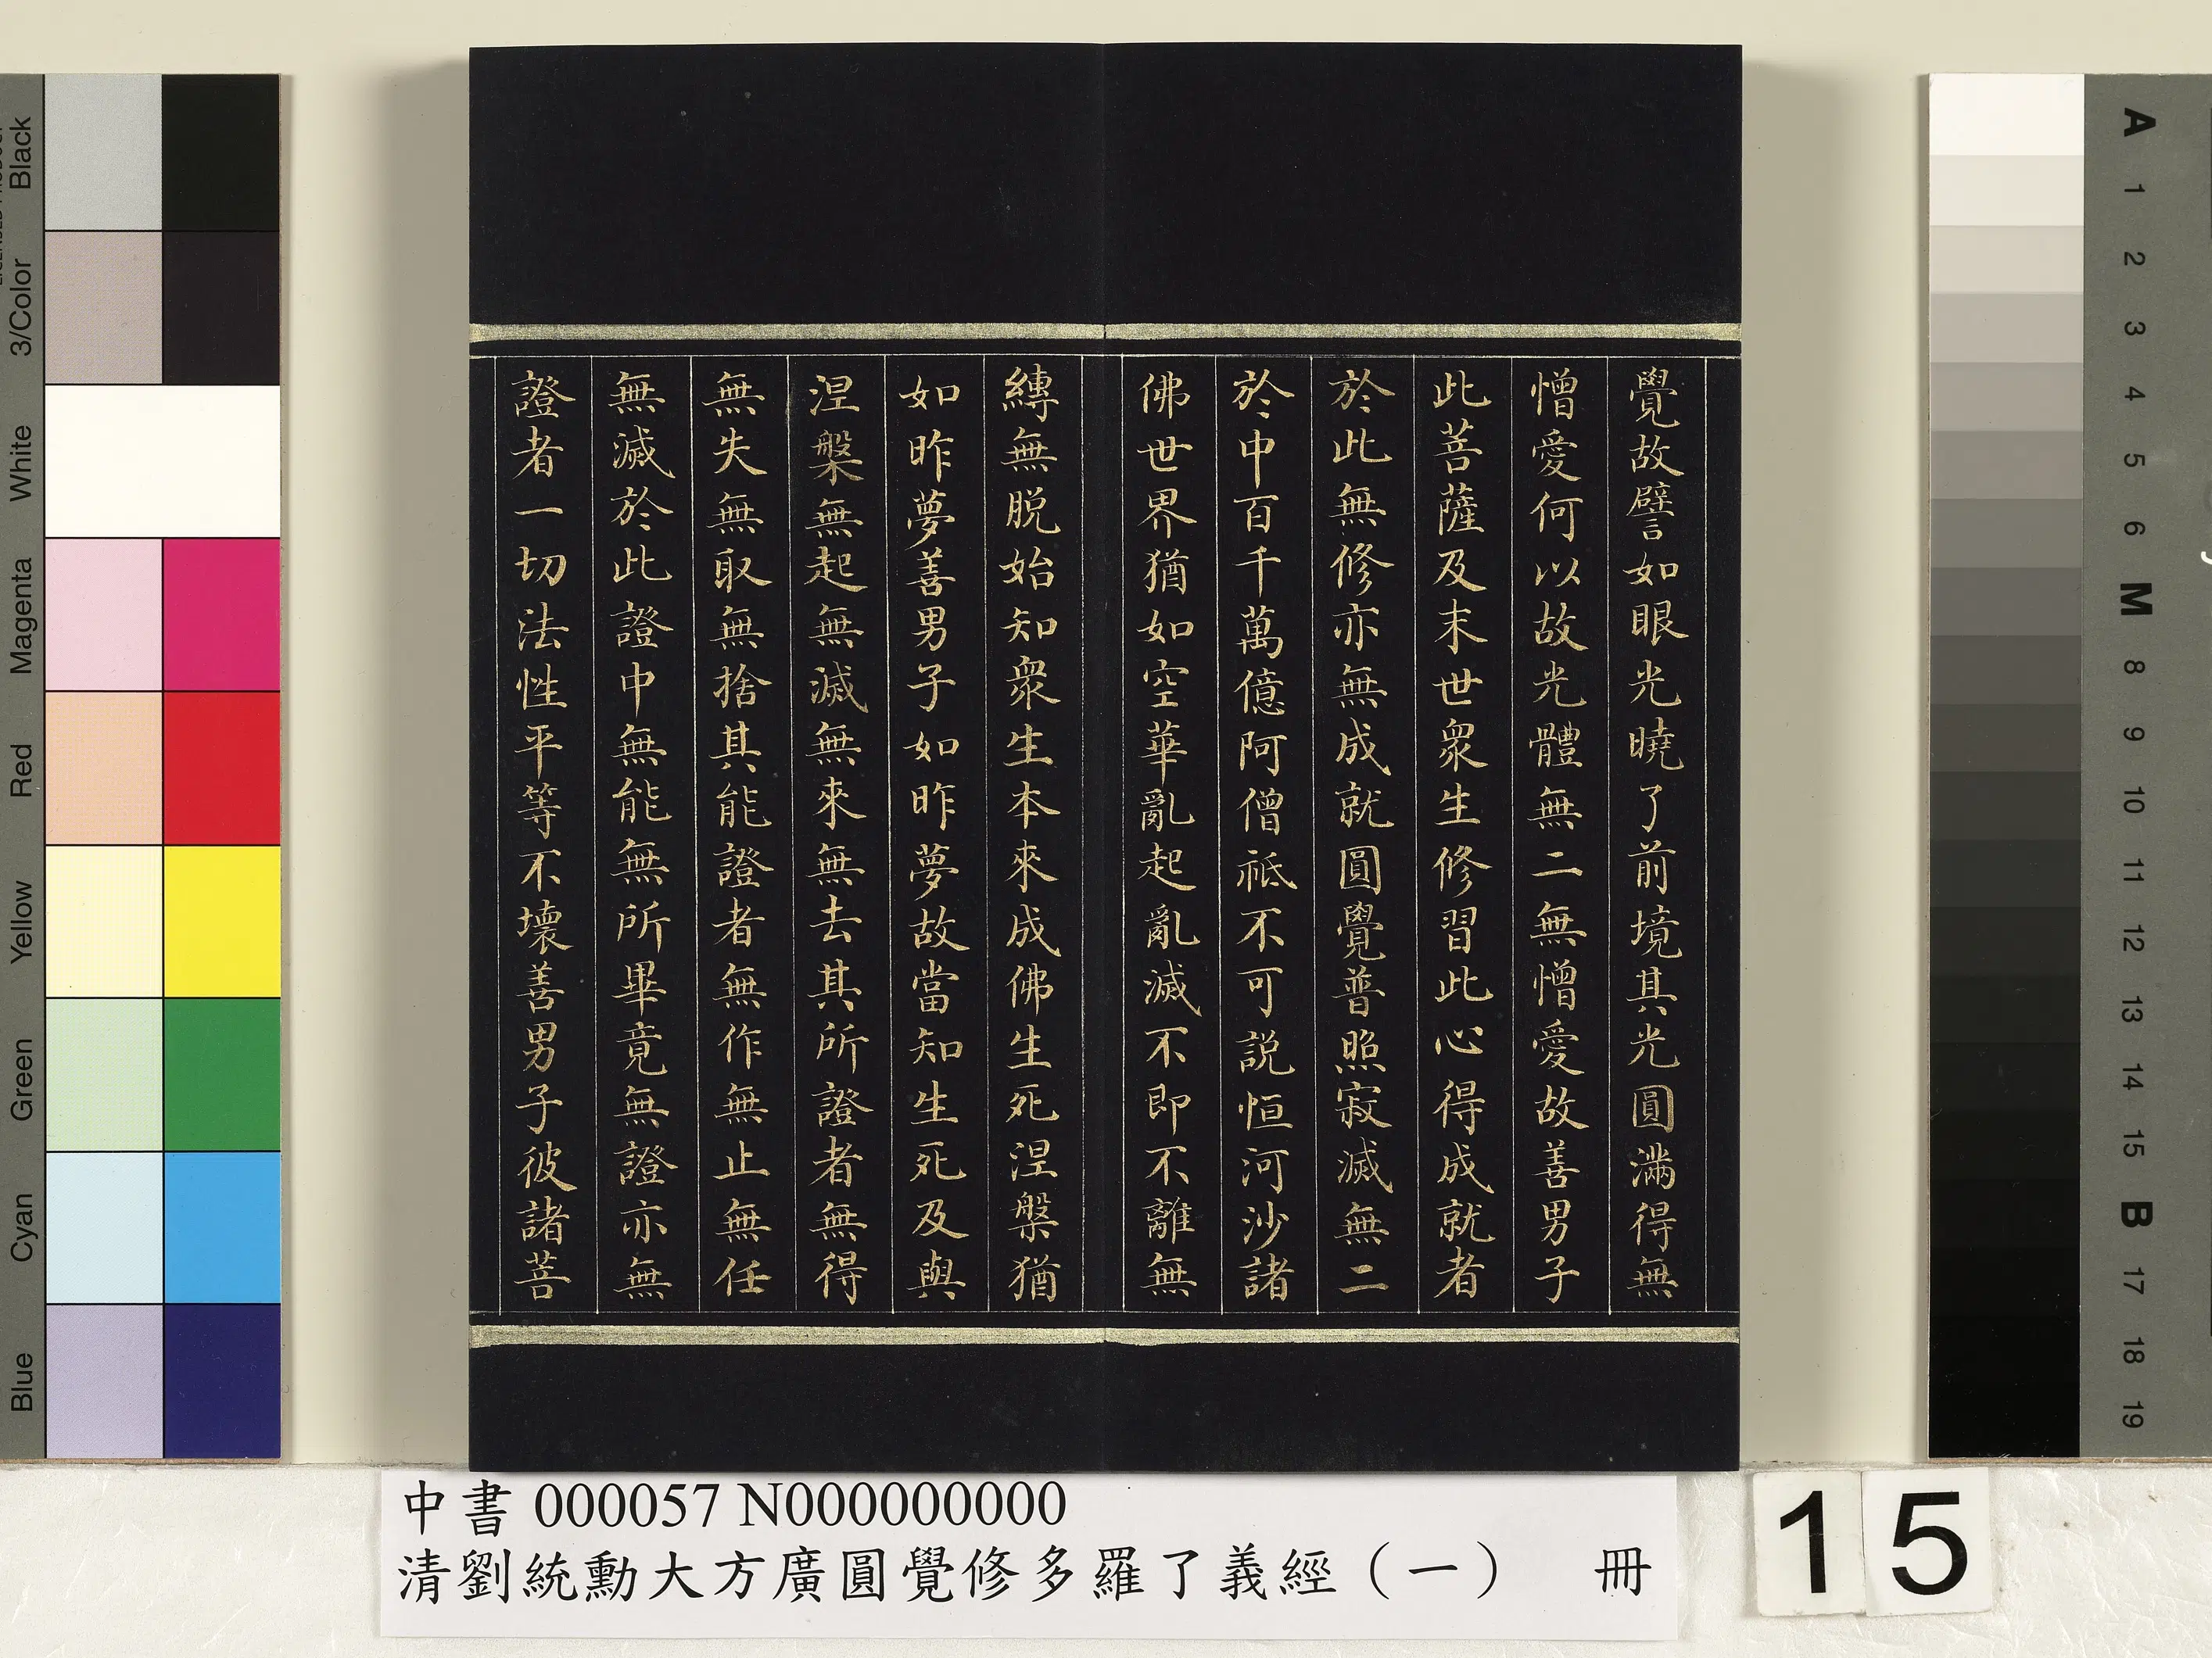 覺故譬如眼光曉了前境其光圓滿得無
憎愛何以故光體無二無憎愛故善男子
此菩薩及末世衆生修習此心得成就者
於此無修亦無成就圓覺普照寂滅無二
於中百千萬億阿僧祇不可說恒河沙諸
佛世界猶如空華亂起亂滅不即不離無
縛無脫始知衆生本來成佛生死涅槃猶
如昨夢善男子如昨夢故當知生死及與
涅槃無起無滅無來無去其所證者無得
無失無取無捨其能證者無作無止無任
無滅於此證中無能無所畢竟無證亦無
證者一切法性平等不壞善男子彼諸菩
中書 000057 N000000000
清劉統勳大方廣圓覺修多羅了義經（一） 冊
15
Black
3/Color
White
Magenta
Red
Yellow
Green
Cyan
Blue
A
1
2
3
4
5
6
M
8
9
10
11
12
13
14
15
B
17
18
19